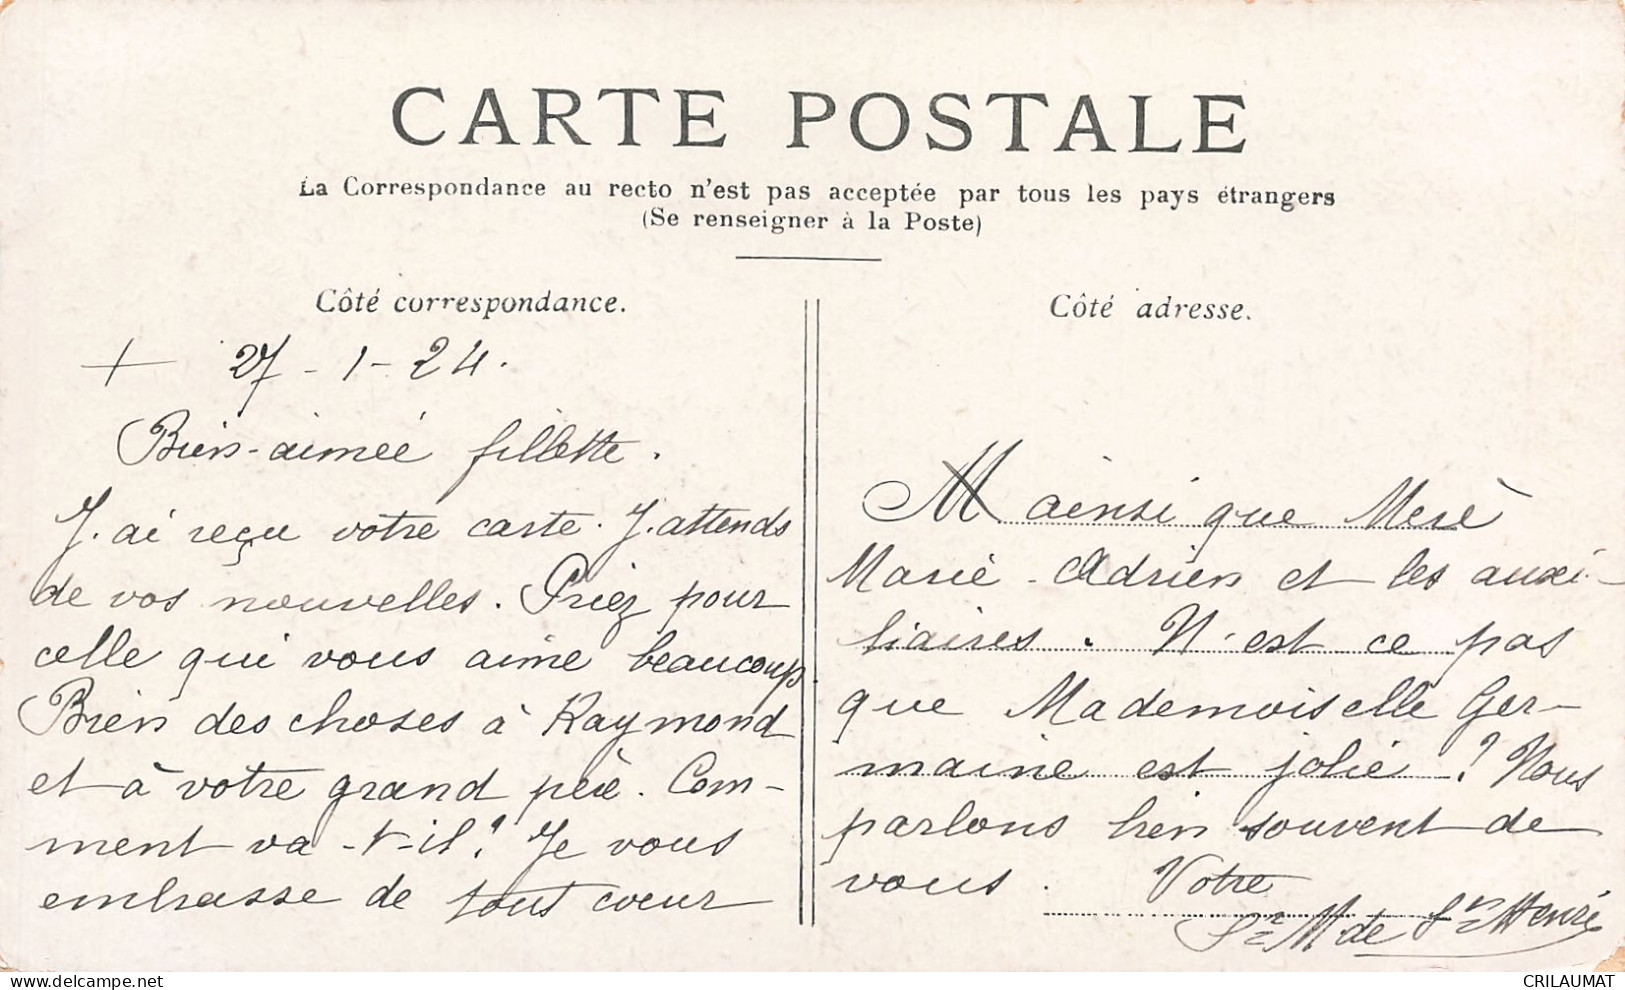 CARTE POSTALE
La Correspondance au recto n'est pas acceptée par tous les pays étrangers
(Se renseigner à la Poste)
Côté correspondance.
+ 27-1-24.
Bien-aimée fillette.
J.ai reçu votre carte. J.attends
de vos nouvelles. Priez pour
celle qui vous aime beaucoup
Bien des choses à Raymond
et à votre grand père. Com-
ment va-t-il? Je vous
embrasse de tout coeur
Côté adresse.
M ainsi que Mère
Marie-Adrien et les auxi-
liaires. N'est ce pas
que Mademoiselle Ger-
maine est jolie! Nous
parlons bien souvent de
vous. Votre
Sr M de St Henri
CRILAUMAT